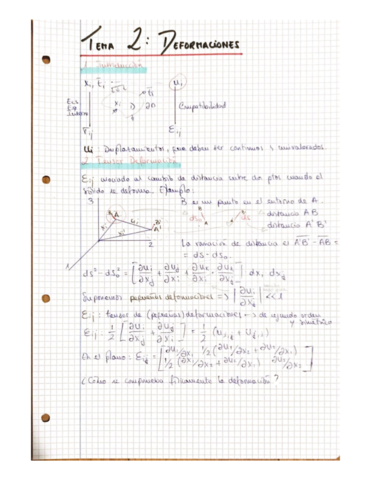 TEMA 2: DEFORMACIONES
1. Introducción
X_i, t_i
u_i
Compatibilidad
ε_ij
u_i Desplazamientos, que deben ser continuos y
2. Tensor Deformación
ε_ij asociado al cambio de distancia entre dos ptos cuando el
sólido se deforma. Ejemplo:
3
B es un punto en el entorno de A.
distancia AB
distancia A'B'
2
1
La variación de distancia es A'B' - AB =
= ds - ds_0
ds² - ds_0² = [∂u_i/∂x_j + ∂u_j/∂x_i + ∂u_k/∂x_i · ∂u_k/∂x_j] dx_i dx_j
Suponemos pequeñas deformaciones => |∂u_i/∂x_j| << 1
ε_ij: tensor de (pequeñas) deformaciones -> de segundo orden
y simétrico
ε_ij = 1/2 [∂u_i/∂x_j + ∂u_j/∂x_i] = 1/2 (u_i,j + u_j,i)
En el plano: ε_ij = [∂u_1/∂x_1 1/2(∂u_1/∂x_2 + ∂u_2/∂x_1)
1/2(∂u_1/∂x_2 + ∂u_2/∂x_1) ∂u_2/∂x_2]
¿Cómo se comprueba físicamente la deformación?